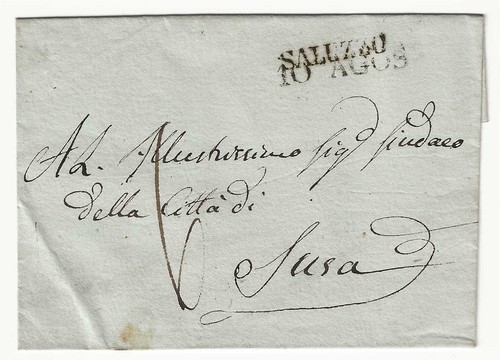 SALUZZO
10 AGOS
All. Illustrissimo Sig.r Sindaco
della Città di
Susa